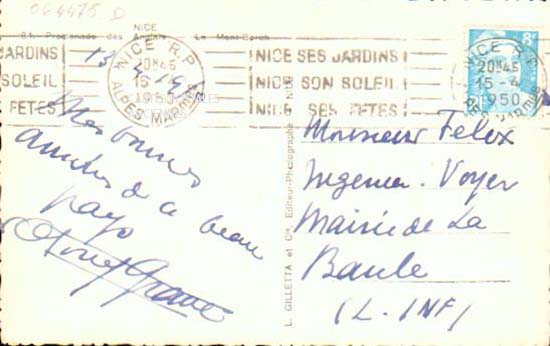 064475 D
NICE
81. Promenade des Anglais Le Mont-Boron
JARDINS
SOLEIL
FETES
NICE R.P.
20H45
15-4
1950
ALPES-MARITIMES
NICE SES JARDINS
NICE SON SOLEIL
NICE SES FETES
NICE R.P.
20H45
15-4
1950
8F
Mes bonnes
amitiés de ce beau
pays
L. GILLETTA et Cie, Editeur-Photographe
Monsieur Felix
Ingenieur-Voyer
Mairie de La
Baule
(L. INF)